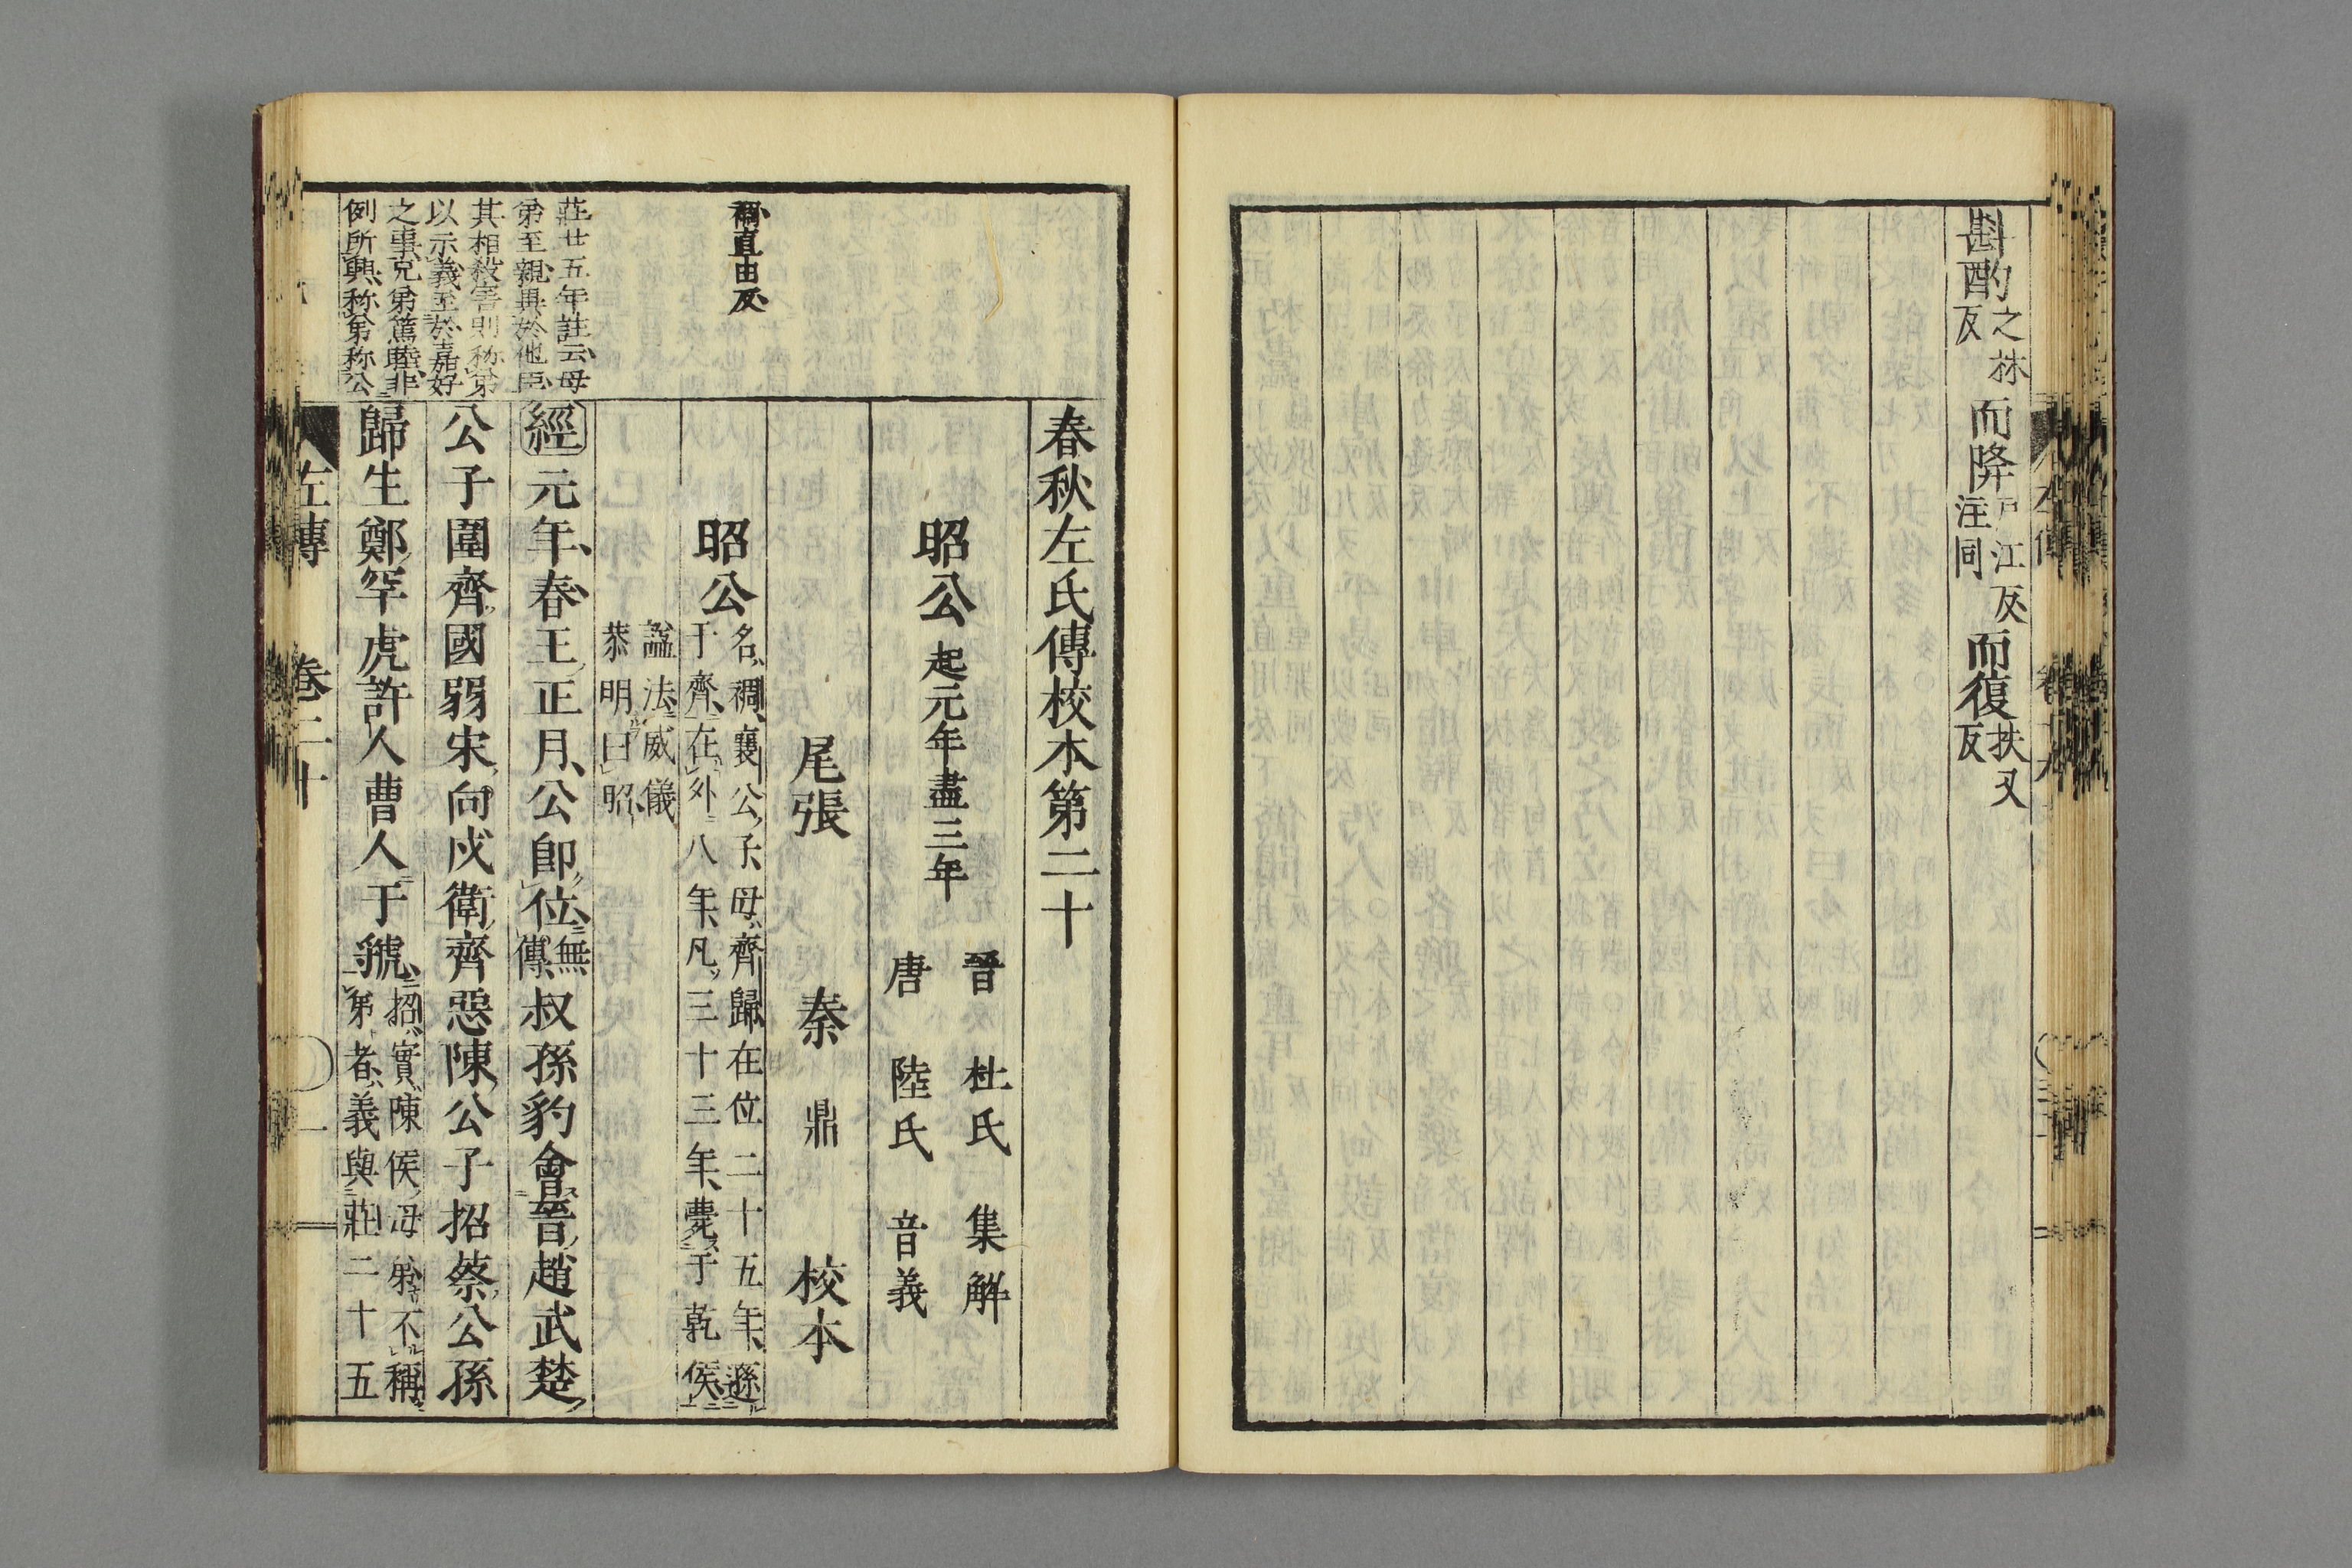 斟酌之㧣反而降戸江反注同而復扶又反
春秋左氏傳校本第二十
晉 杜氏 集解
昭公起元年盡三年
唐 陸氏 音義
尾張 秦 鼎 校本
昭公名裯襄公子母齊歸在位二十五年遜于齊在外八年凡三十三年薨于乾侯
諡法威儀恭明曰昭
經元年春王正月公卽位無傳叔孫豹會晉趙武楚
公子圍齊國弱宋向戌衛齊惡陳公子招蔡公孫
歸生鄭罕虎許人曹人于虢招實陳侯母弟不稱弟者義與莊二十五
裯直由反
莊廿五年註云母
弟至親異於他臣
其相殺害則称弟
以示義至於嘉好
之事兄弟篤睦非
例所興称弟称公
左傳 卷二十 一